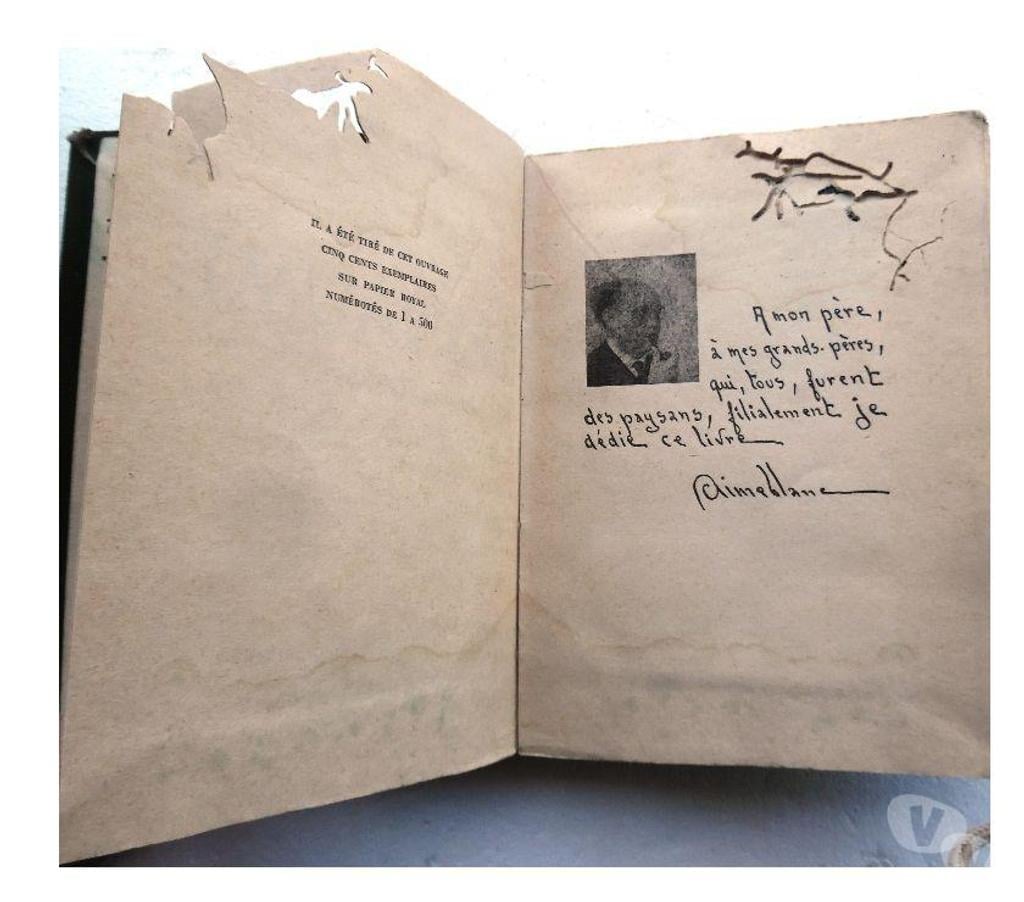 IL A ÉTÉ TIRÉ DE CET OUVRAGE
CINQ CENTS EXEMPLAIRES
SUR PAPIER ROYAL
NUMÉROTÉS DE 1 A 500
A mon père,
à mes grands-pères,
qui, tous, furent
des paysans, filialement je
dédie ce livre
Aimeblanc
V